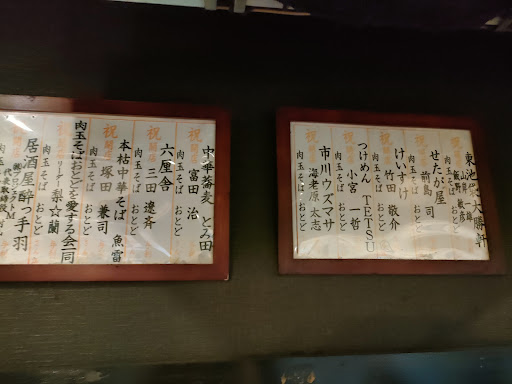 東池袋大勝軒
飯野敏彦
肉玉そば おとど
せたが屋
前島 司
肉玉そば おとど
けいすけ
竹田 敬介
肉玉そば おとど
つけめん TETSU
小宮 一哲
肉玉そば おとど
市川ウズマサ
海老原 太志
肉玉そば おとど
祝開店
中華蕎麦 とみ田
富田 治
肉玉そば おとど
祝開店
六厘舎
三田 遼斉
肉玉そば おとど
祝開店
本枯中華そば 魚雷
塚田 兼司
肉玉そば おとど
肉玉そばおとどを愛する会一同
リーダー 梨☆蘭
肉玉そば おとど
居酒屋酔っ手羽
代表取締役
肉玉